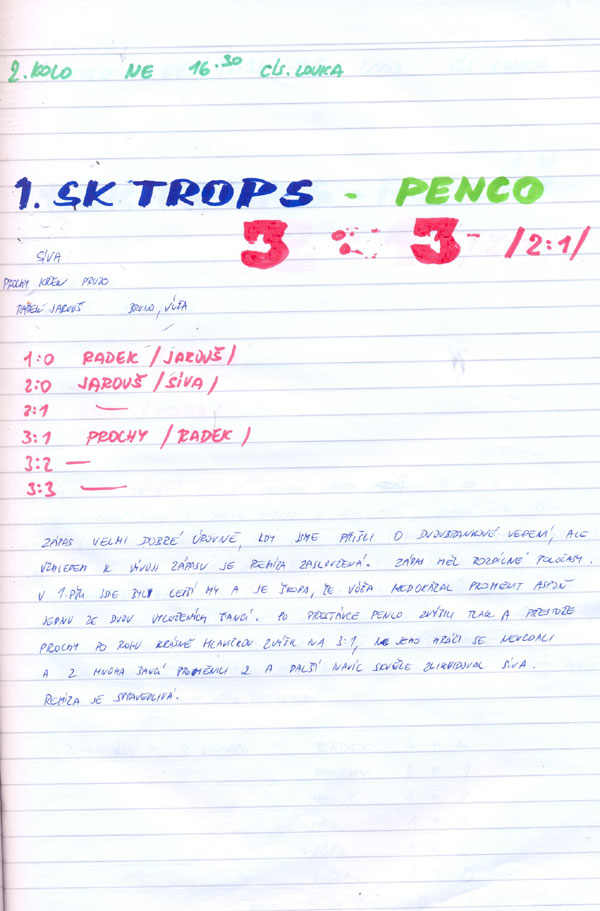 2. KOLO NE 16.30 CÍS. LOUKA
1. SK TROPS - PENCO
3 : 3 /2:1/
SÍVA
PROCHY KŘEN
RADEK JAROUŠ , VÓŠA
1:0 RADEK /JAROUŠ/
2:0 JAROUŠ /SÍVA/
2:1 —
3:1 PROCHY /RADEK/
3:2 —
3:3 —
ZÁPAS VELMI DOBRÉ ÚROVNĚ, KDY JSME PŘIŠLI O DVOUBRANKOVÉ VEDENÍ, ALE
VZHLEDEM K VÝVOJI ZÁPASU JE REMÍZA ZASLOUŽENÁ. ZÁPAS MĚL ROZDÍLNÉ POLOČASY.
V 1. PŮLI JSME BYLI LEPŠÍ MY A JE ŠKODA, ŽE VÓŠA NEDOKÁZAL PROMĚNIT ASPOŇ
JEDNU ZE DVOU VYLOŽENÝCH ŠANCÍ. PO PŘESTÁVCE PENCO ZVÝŠILI TLAK A PŘESTOŽE
PROCHY PO ROHU KRÁSNĚ HLAVIČKOU ZVÝŠIL NA 3:1, HRÁČI SE NEVZDALI
A Z MNOHA ŠANCÍ PROMĚNILI 2 A DALŠÍ NAVÍC SKVĚLE ZLIKVIDOVAL SÍVA.
REMÍZA JE SPRAVEDLIVÁ.